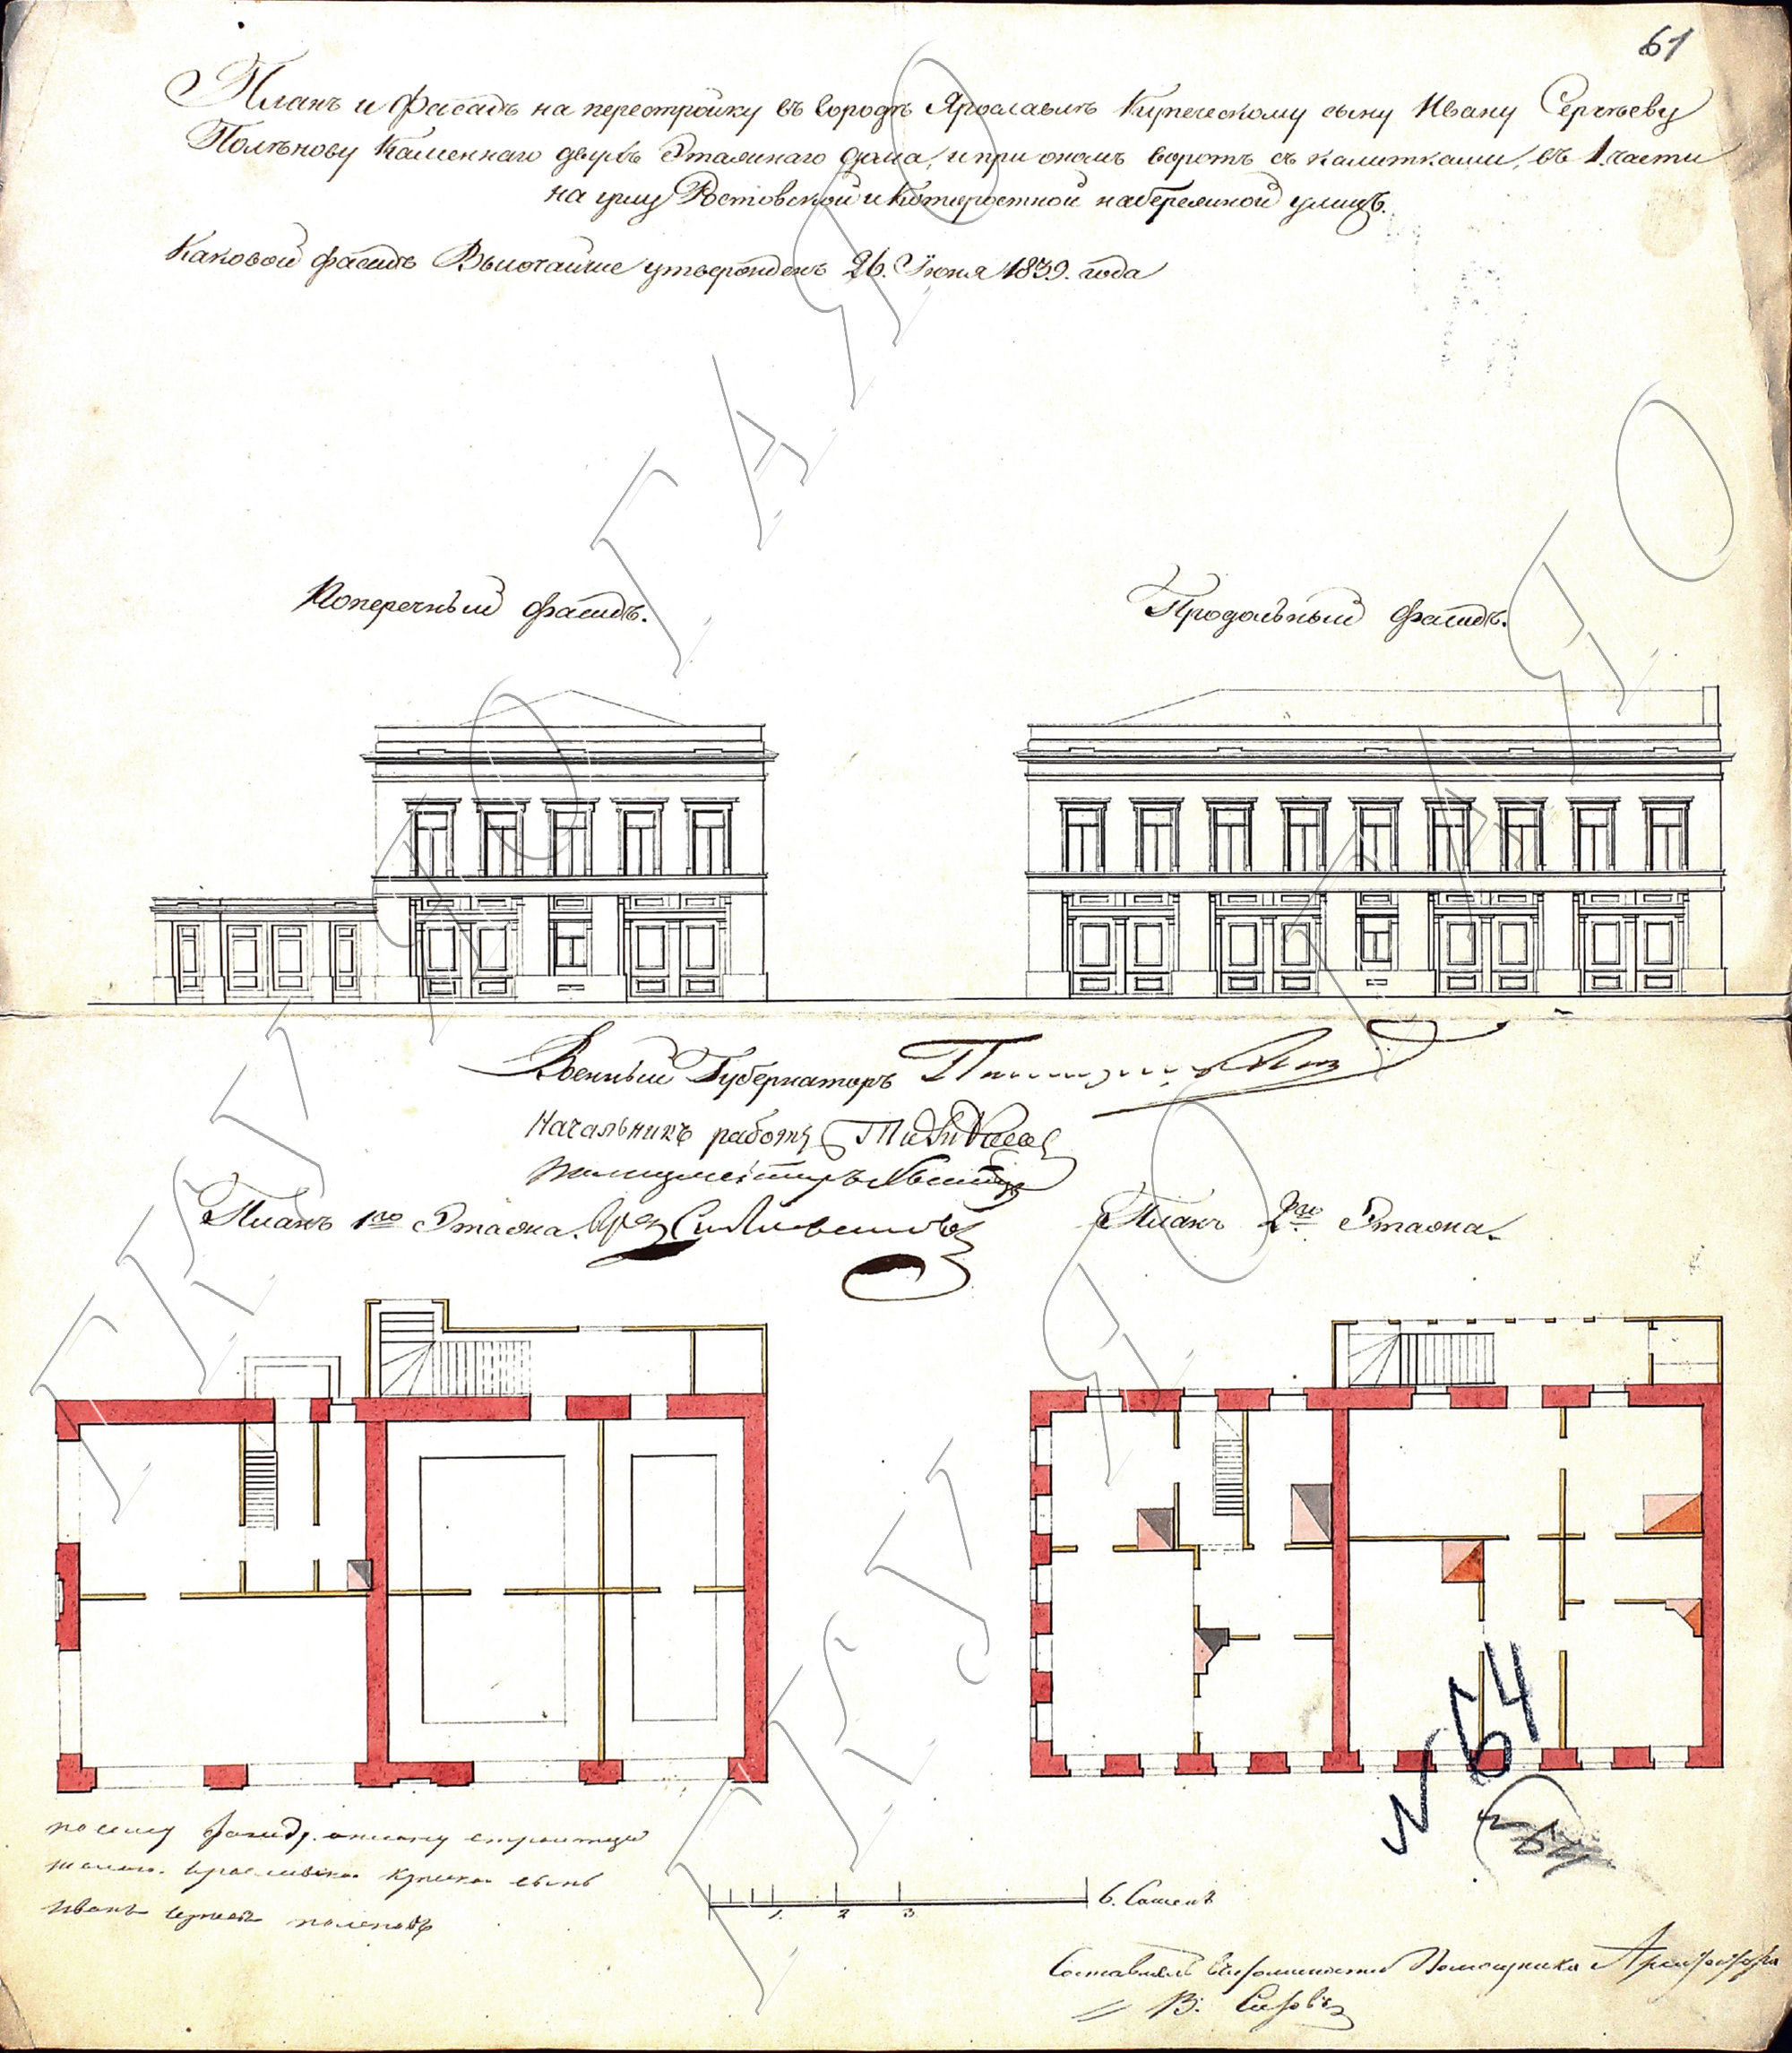 61
Планъ и фасадъ на перестройку въ городѣ Ярославлѣ Купеческому сыну Ивану Сергѣеву
Полѣнову Каменнаго двухъ Этажнаго дома, и при ономъ воротъ съ калитками, въ 1 части
на углу Ростовской и Которостной набережной улицъ.
Каковой фасадъ Высочайше утвержденъ 26. Іюня 1839. года
Поперечный фасадъ.
Продольный фасадъ.
Военный Губернаторъ
Начальникъ работъ
Полицмейстеръ
Планъ 1го Этажа. Арх.
Планъ 2го Этажа.
N 64
по сему фасаду и плану
сынъ
Иванъ Полѣновъ
1. 2 3 6. Саженъ
Составлялъ Помощника Архитектора
В.
ГКУ ЯО ГАЯО
ГКУ ЯО ГАЯО